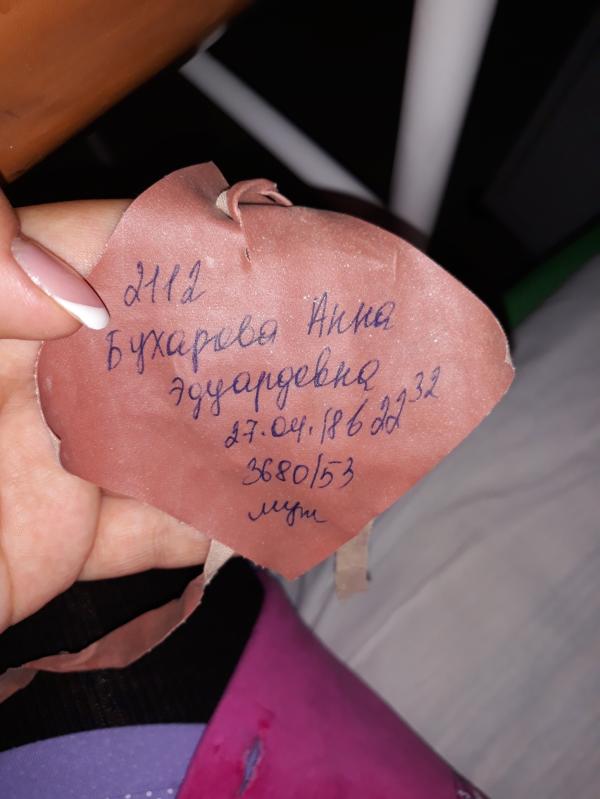 2112
Бухарова Анна
Эдуардовна
27.04./86 22 32
3680/53
муж